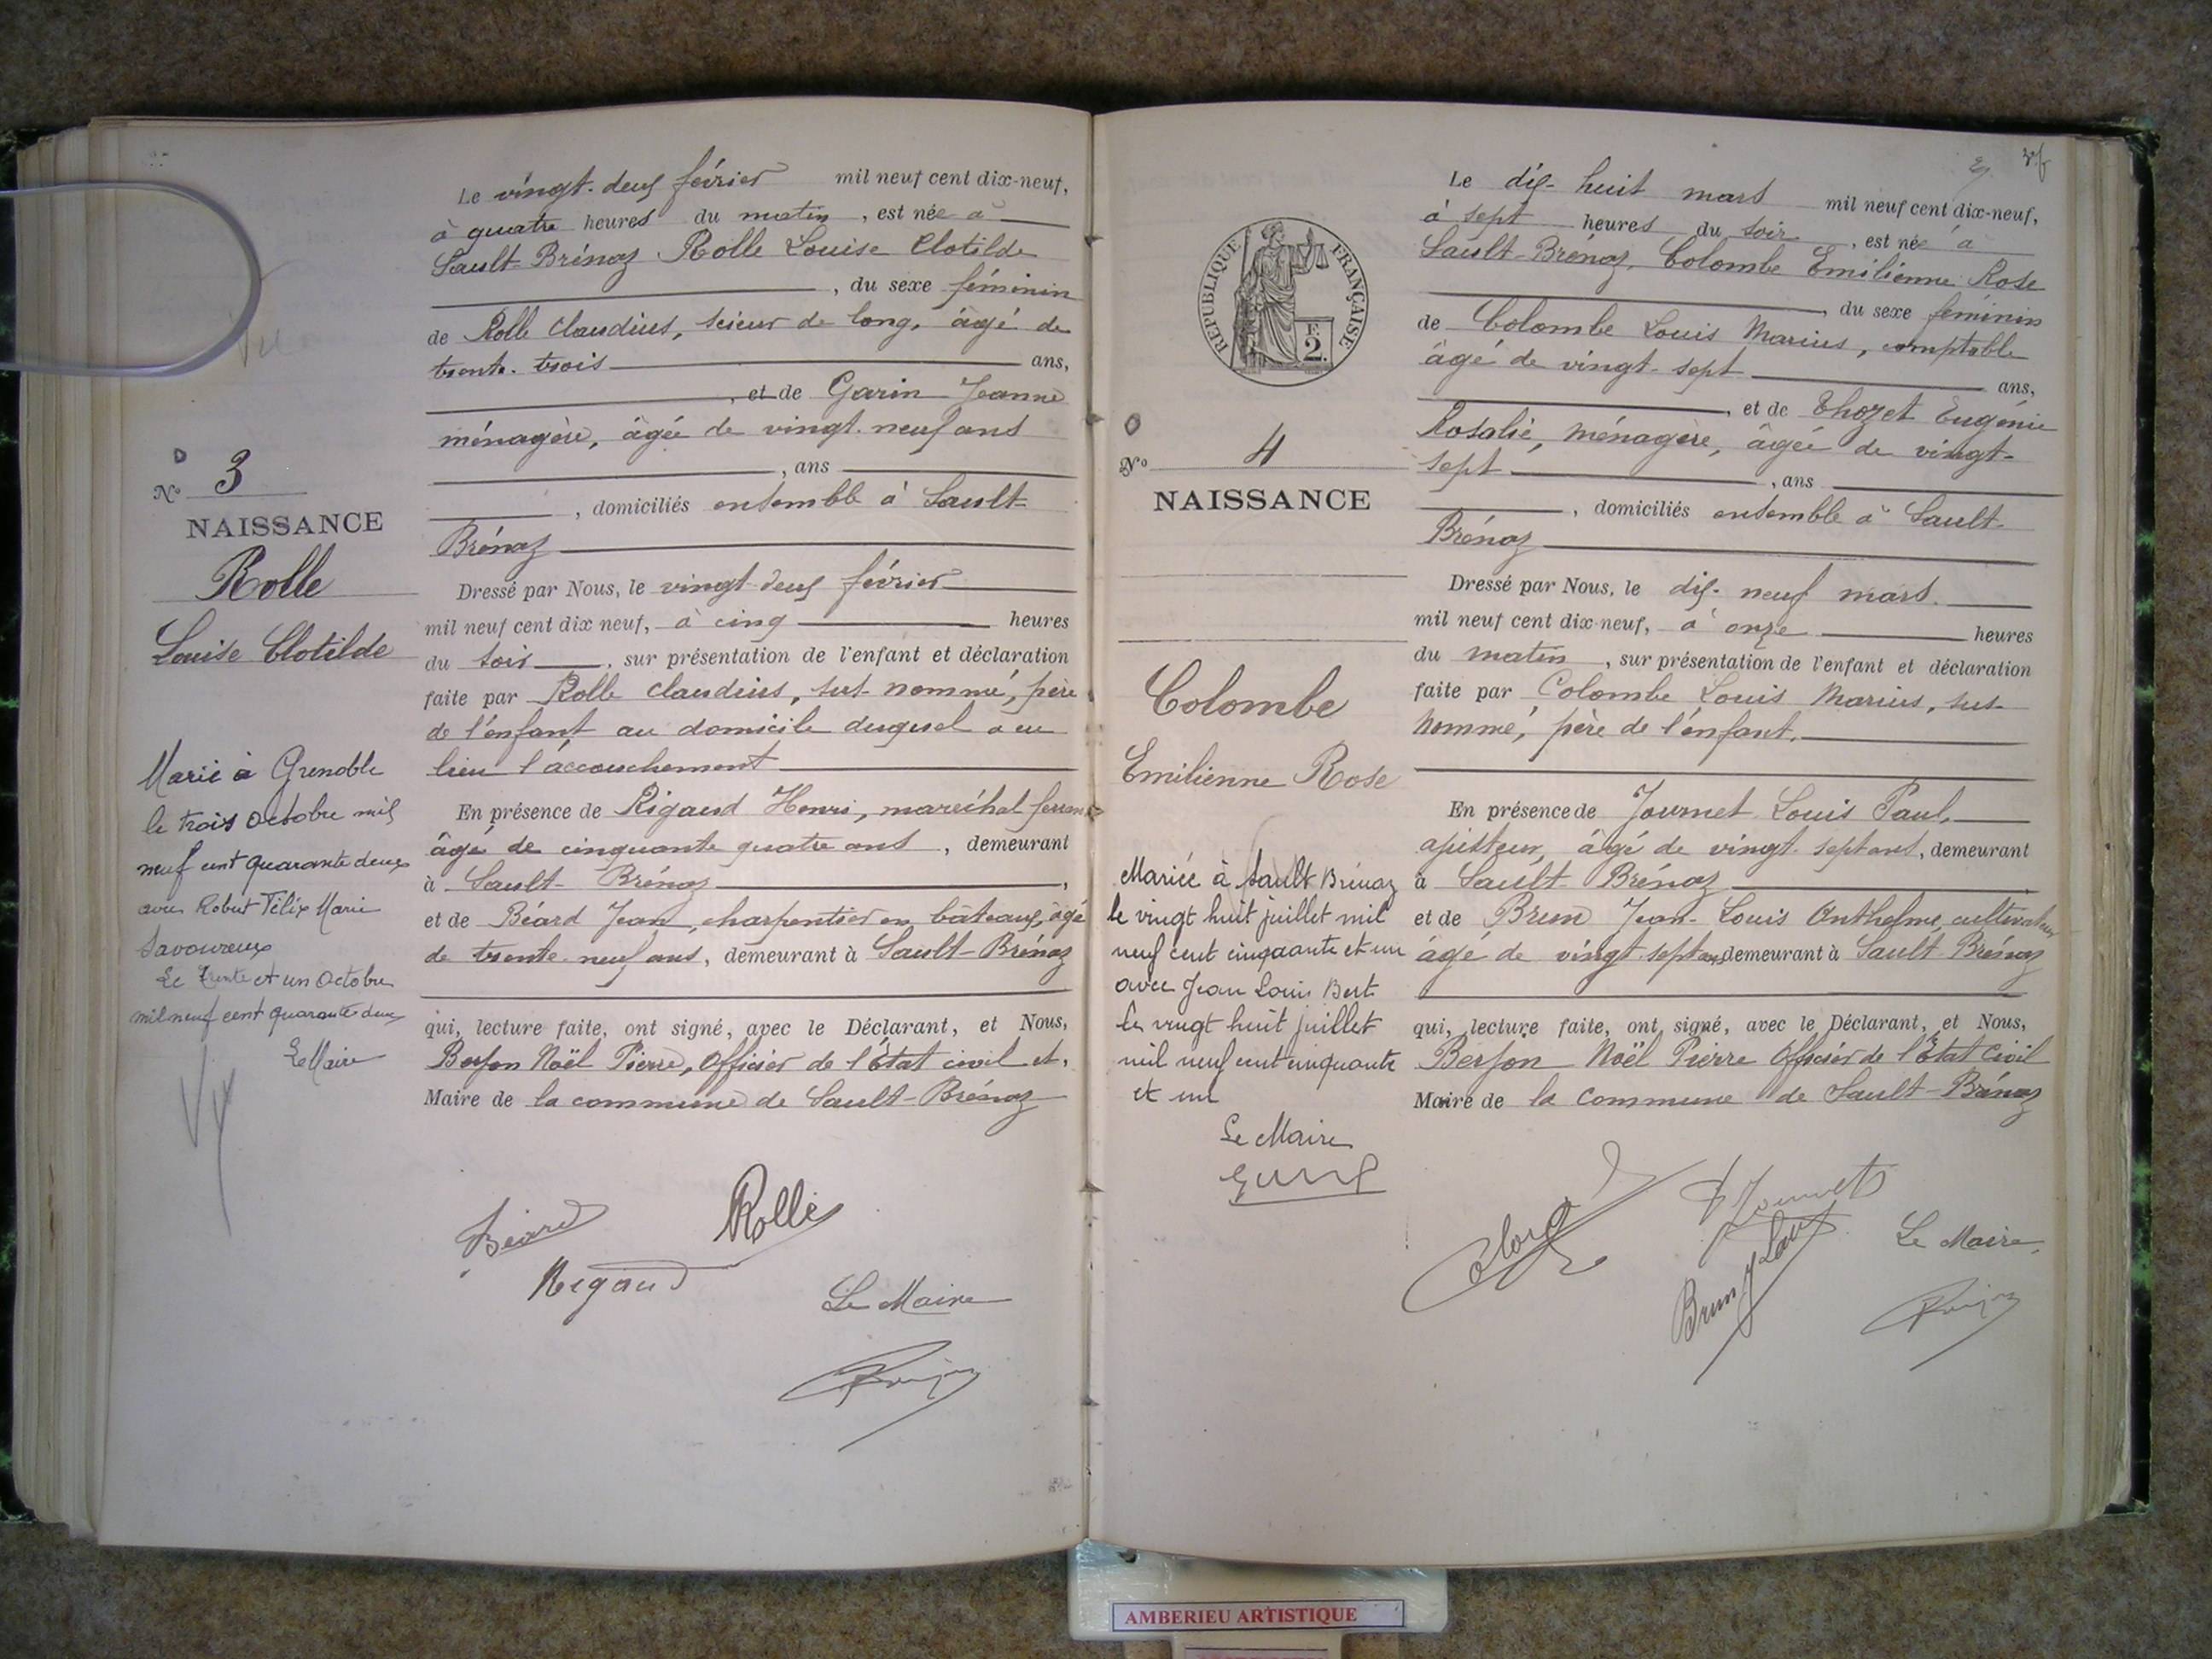 Le vingt-deux février mil neuf cent dix-neuf,
à quatre heures du matin, est née à
Sault-Brénaz Rolle Louise Clotilde
, du sexe féminin
de Rolle Claudius, scieur de long, âgé de
trente-trois ans,
, et de Garin Jeanne
ménagère, âgée de vingt-neuf ans
, ans
, domiciliés ensemble à Sault-
Brénaz
Dressé par Nous, le vingt-deux février
mil neuf cent dix neuf, à cinq heures
du soir, sur présentation de l'enfant et déclaration
faite par Rolle Claudius, sus-nommé, père
de l'enfant au domicile duquel a eu
lieu l'accouchement
En présence de Rigaud Henri, maréchal ferrant
âgé de cinquante quatre ans, demeurant
à Sault-Brénaz,
et de Béard Jean, charpentier en bateaux, âgé
de trente-neuf ans, demeurant à Sault-Brénaz
qui, lecture faite, ont signé, avec le Déclarant, et Nous,
Berjon Noël Pierre, Officier de l'État civil et,
Maire de la commune de Sault-Brénaz
Béard
Rolle
Rigaud
Le Maire
N° 3
NAISSANCE
Rolle
Louise Clotilde
Marié à Grenoble
le trois Octobre mil
neuf cent quarante deux
avec Robert Félix Marie
Savoureux
Le trente et un Octobre
mil neuf cent quarante deux
Le Maire
RÉPUBLIQUE FRANÇAISE
2
N° 4
NAISSANCE
Colombe
Emilienne Rose
Mariée à Sault Brénaz
le vingt huit juillet mil
neuf cent cinquante et un
avec Jean Louis Bert
Le vingt huit juillet
mil neuf cent cinquante
et un
Le Maire
Le dix-huit mars mil neuf cent dix-neuf,
à sept heures du soir, est née à
Sault-Brénaz, Colombe Emilienne Rose
, du sexe féminin
de Colombe Louis Marius, comptable
âgé de vingt-sept ans,
, et de Thozet Eugénie
Rosalie, ménagère, âgée de vingt-
sept, ans
, domiciliés ensemble à Sault-
Brénaz
Dressé par Nous, le dix-neuf mars
mil neuf cent dix-neuf, à onze heures
du matin, sur présentation de l'enfant et déclaration
faite par Colombe Louis Marius, sus-
nommé, père de l'enfant.
En présence de Journet Louis Paul,
ajusteur, âgé de vingt-sept ans, demeurant
à Sault-Brénaz
et de Brun Jean-Louis Anthelme, cultivateur
âgé de vingt-sept ans demeurant à Sault-Brénaz
qui, lecture faite, ont signé, avec le Déclarant, et Nous,
Berjon Noël Pierre Officier de l'État Civil
Maire de la commune de Sault-Brénaz
Journet
Brun J Louis
Le Maire,
AMBERIEU ARTISTIQUE